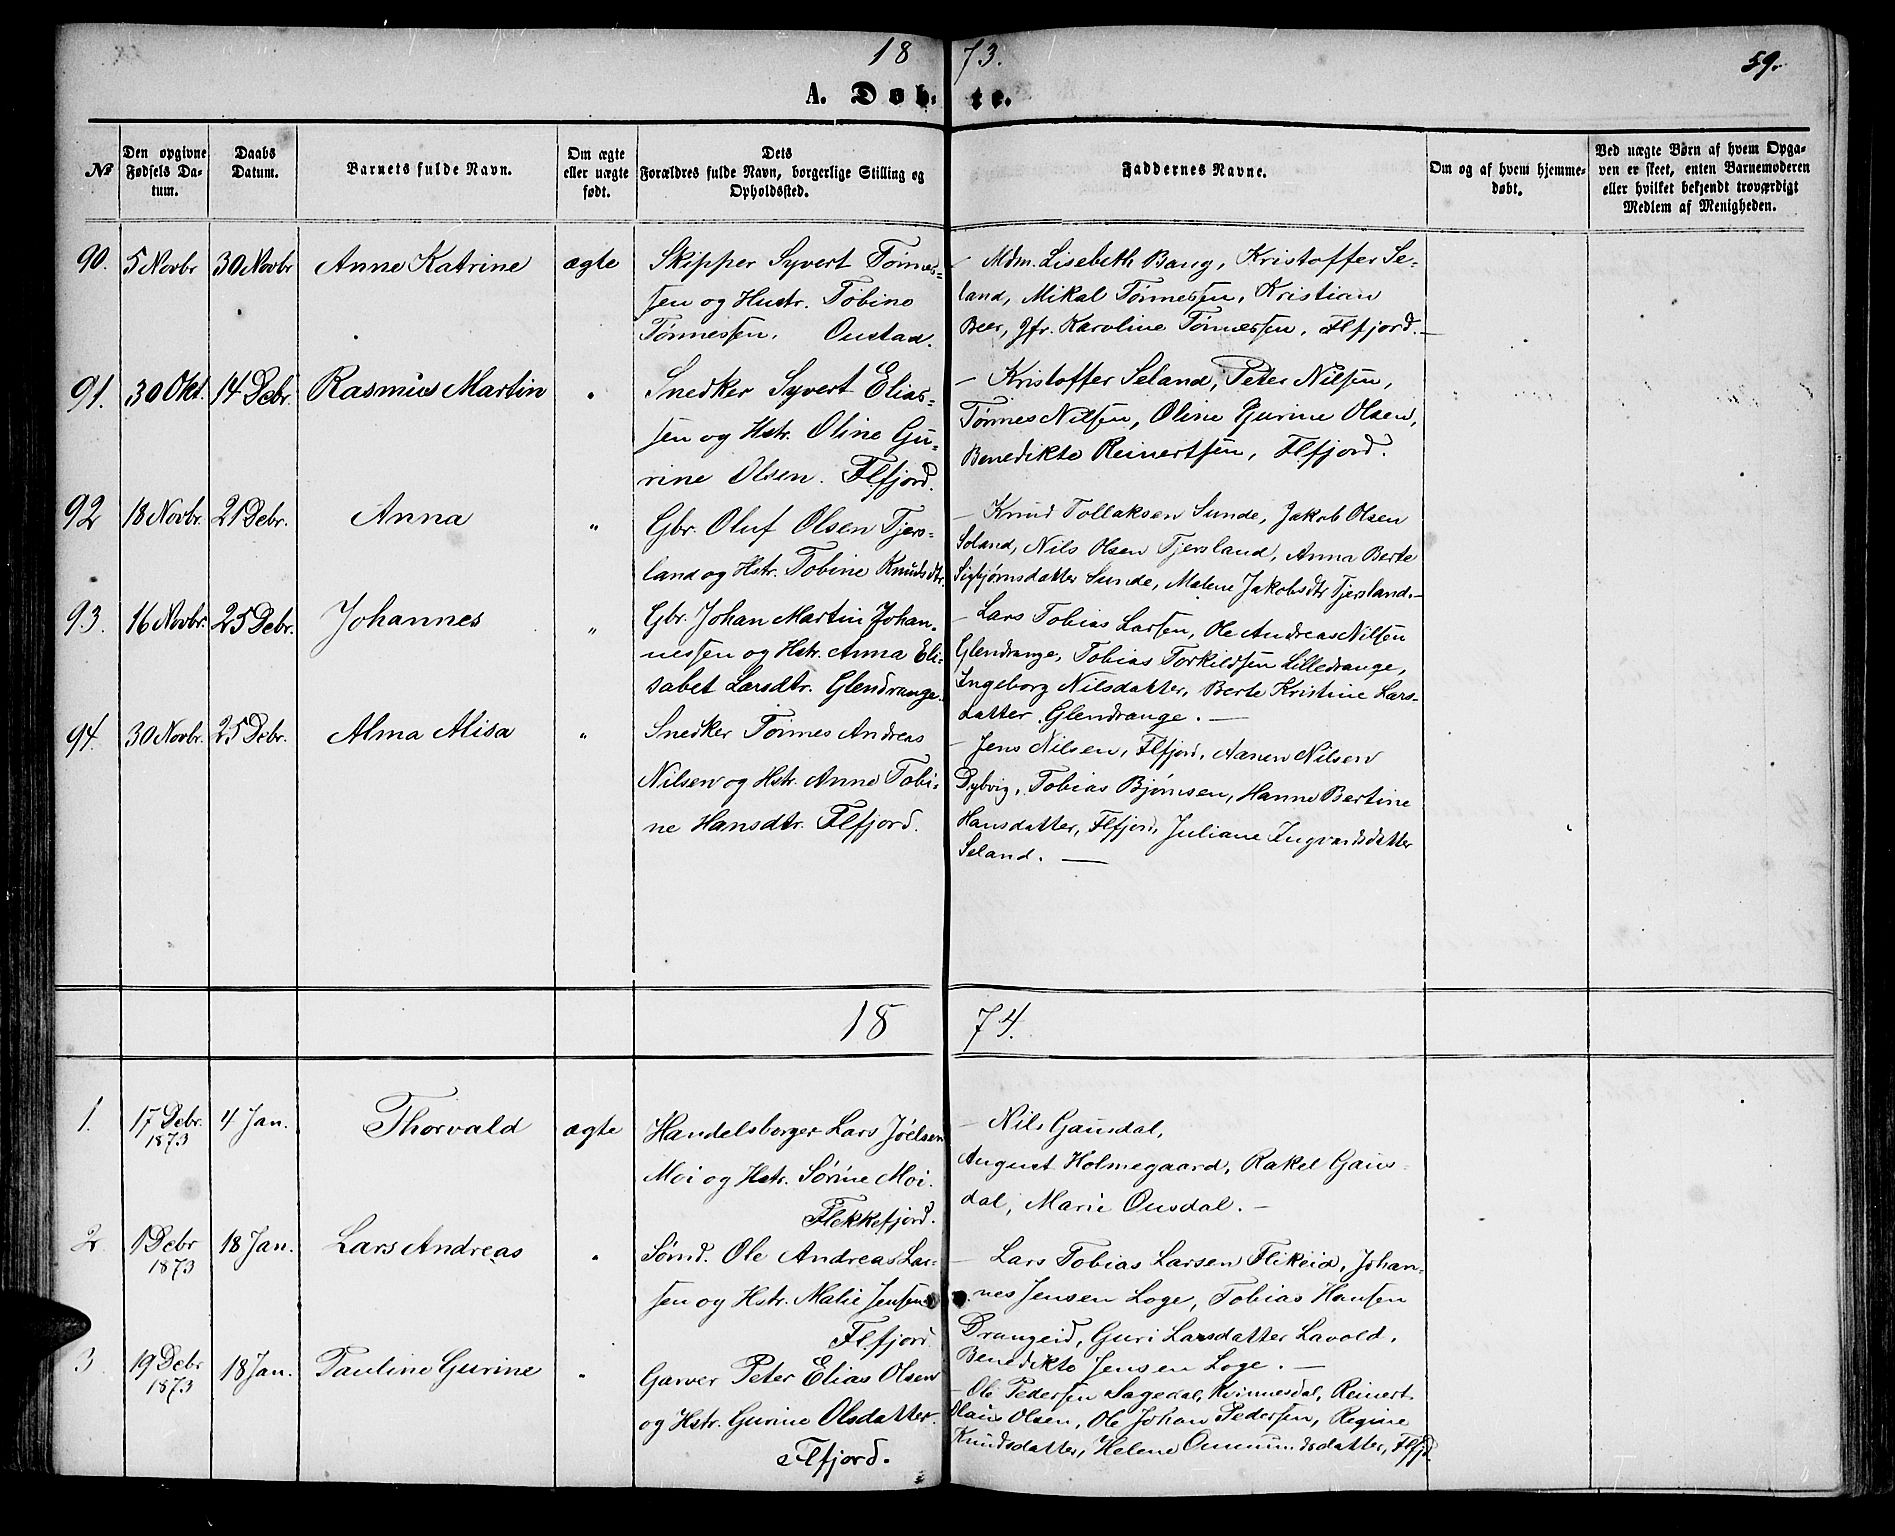 18 73. 59.
A. Døb- te.
No
Den opgivne Fødsels Datum.
Daabs Datum.
Barnets fulde Navn.
Om ægte eller uægte født.
Dets Forældres fulde Navn, borgerlige Stilling og Opholdssted.
Faddernes Navne.
Om og af hvem hjemmedøbt.
Ved uægte Børn af hvem Opgaven er skeet, enten Barnemoderen eller hvilket bekjendt troværdigt Medlem af Menigheden.
90. 5 Novbr 30 Novbr Anne Katrine ægte
Skipper Syvert Tønnes-
sen og Hustr. Tobine
Tønnessen. Oustad.
– Mdm. Lisebeth Bang, Kristoffer Se-
land, Mikal Tønnessen, Kristian
Beer, Jfr. Karoline Tønnessen, Flfjord. –
91. 30 Okt. 14 Debr. Rasmus Martin "
Snedker Syvert Elias-
sen og Hstr. Oline Gu-
rine Olsen. Flfjord.
– Kristoffer Seland, Peter Nilsen,
Tønnes Nilsen, Oline Gurine Olsen,
Benedikte Reinertsen, Flfjord.
92 18 Novbr. 21 Debr. Anna "
Gbr. Oluf Olsen Tjers-
land og Hstr. Tobine Knudsdtr.
– Knud Tollaksen Sunde, Jakob Olsen
Soland, Nils Olsen Tjersland, Anna Berte
Sigbjørnsdatter Sunde, Malene Jakobsdtr Tjersland. –
93. 16 Novbr. 25 Debr. Johannes "
Gbr. Johan Martin Johan-
nessen og Hstr. Anna Eli-
sabet Larsdtr. Glendrange.
– Lars Tobias Larsen, Ole Andreas Nilsen
Glendrange, Tobias Torkildsen Lilledrange,
Ingeborg Nilsdatter, Berte Kristine Lars-
datter Glendrange. –
94. 30 Novbr. 25 Debr. Alma Alisa "
Snedker Tønnes Andreas
Nilsen og Hstr. Anne Tobi-
ne Hansdtr. Flfjord.
– Jens Nilsen, Flfjord, Aanen Nilsen
Dybvig, Tobias Bjørnsen, Hanne Bertine
Hansdatter, Flfjord, Juliane Ingvardsdatter
Seland. –
18 74.
1. 17 Debr. 1873 4 Jan. Thorvald ægte
Handelsborger Lars Jóelsen
Moi og Hstr. Sørine Moi.
Flekkefjord.
– Nils Gausdal,
August Holmegaard, Rakel Gaus-
dal, Marie Ousdal. –
2. 1 Debr 1873 18 Jan. Lars Andreas "
Sømd. Ole Andreas Lar-
sen og Hstr. Malie Jensen
Flfjord.
– Lars Tobias Larsen Flikeid, Johan-
nes Jensen Loge, Tobias Hansen
Drangeid, Guri Larsdatter Lavold,
Benedikte Jensen Loge. –
3 19 Debr 1873 18 Jan. Pauline Gurine "
Garver Peter Elias Olsen
og Hstr. Gurine Olsdatter.
Flfjord.
– Ole Pedersen Sagedal, Kvinnesdal, Reinert
Olaus Olsen, Ole Johan Pedersen, Regine
Knudsdatter, Helene Ommundsdatter, Flfjd.